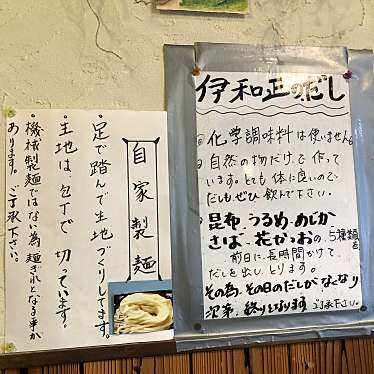 伊和正のだし
◎化学調味料は使いません。
◎自然の物だけで作って
います。とても体に良いので
だしもぜひ飲んで下さい。
昆布・うるめ・めじか
さば・花かつおの、5種類を
前日に、長時間かけて
だしを出しとります。
その為、その日のだしがなくなり
次第、終りとなります ご了承下さい。
自家製麺
・足で踏んで生地づくりしてます。
・生地は、包丁で切っています。
・機械製麺ではない為、麺ぎれとなる事が
あります。ご了承下さい。